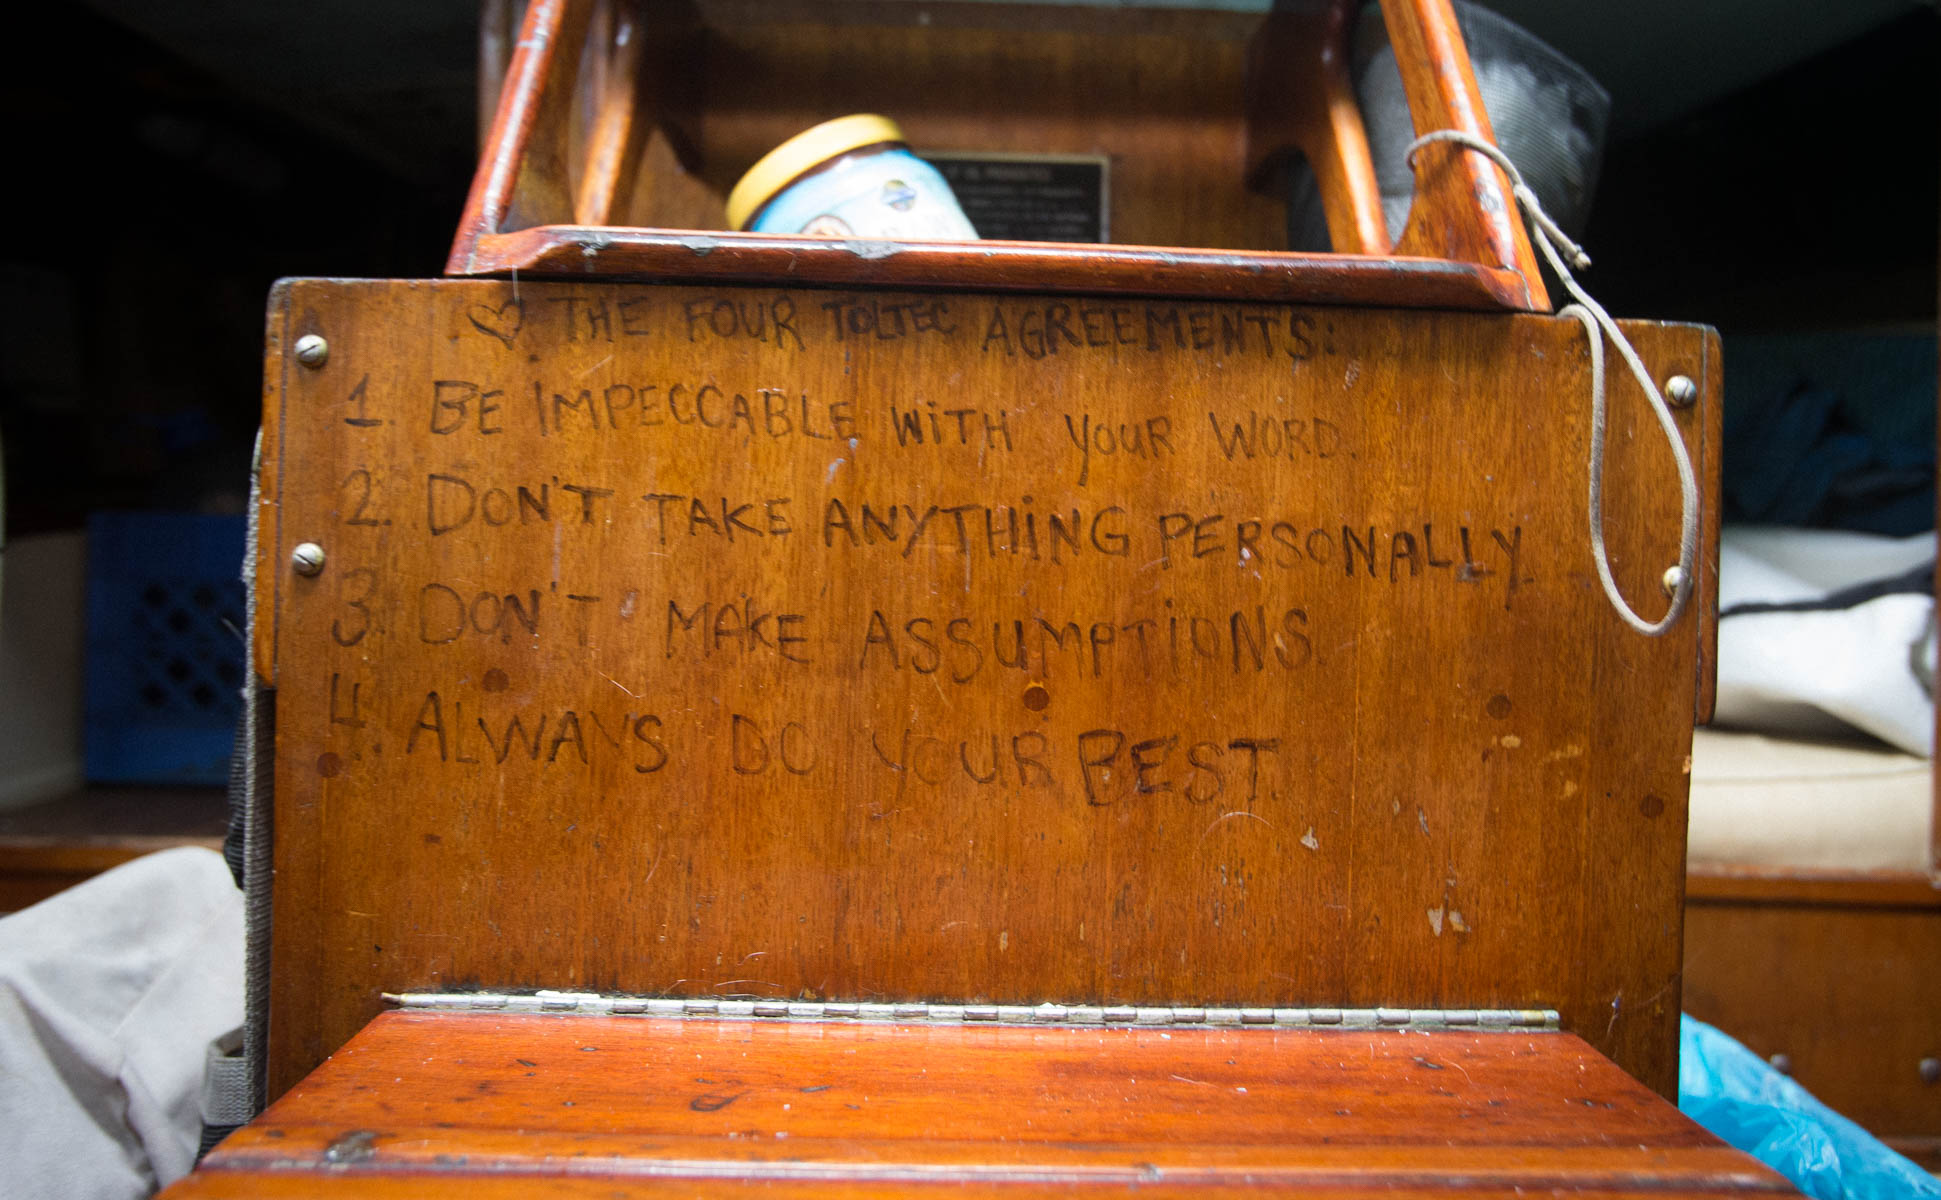 ♡ THE FOUR TOLTEC AGREEMENTS:
1. BE IMPECCABLE WiTH YOUR WORD.
2. DON'T TAKE ANYTHiNG PERSONALLY.
3. DON'T MAKE ASSUMPTiONS.
4. ALWAYS DO YOUR BEST.